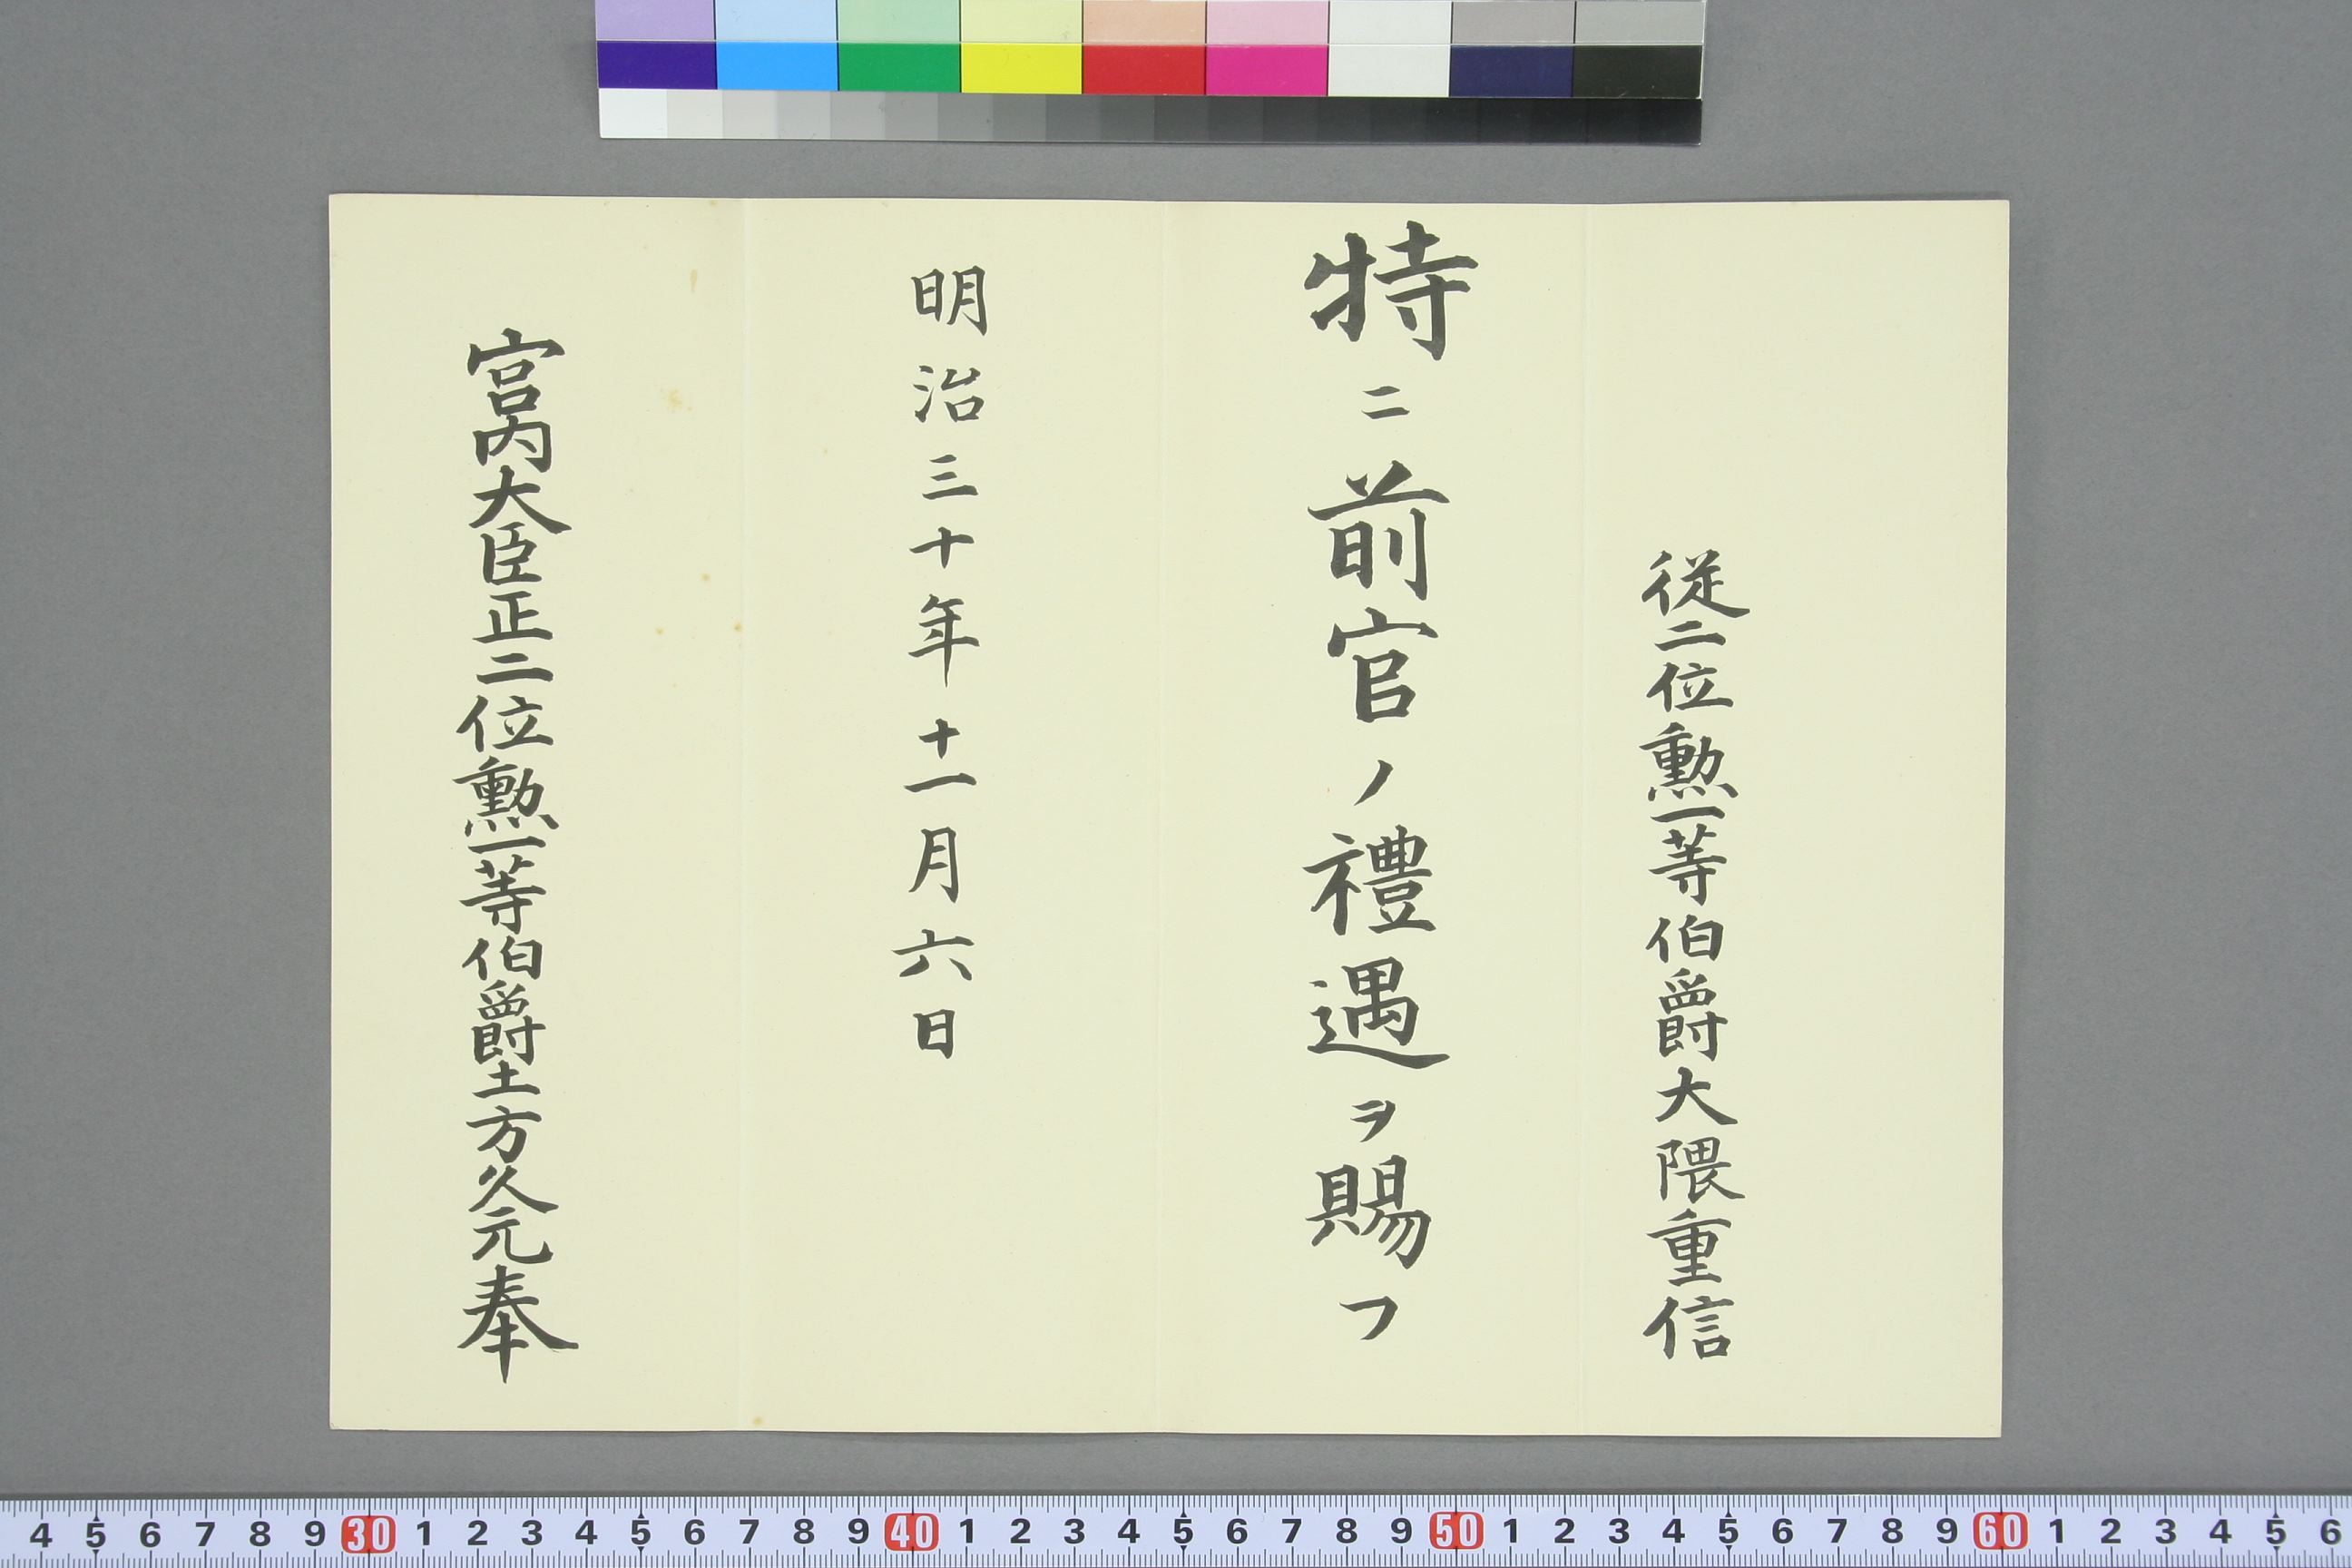 従二位勲一等伯爵大隈重信
特ニ前官ノ禮遇ヲ賜フ
明治三十年十一月六日
宮内大臣正二位勲一等伯爵土方久元奉
4 5 6 7 8 9 30 1 2 3 4 5 6 7 8 9 40 1 2 3 4 5 6 7 8 9 50 1 2 3 4 5 6 7 8 9 60 1 2 3 4 5 6